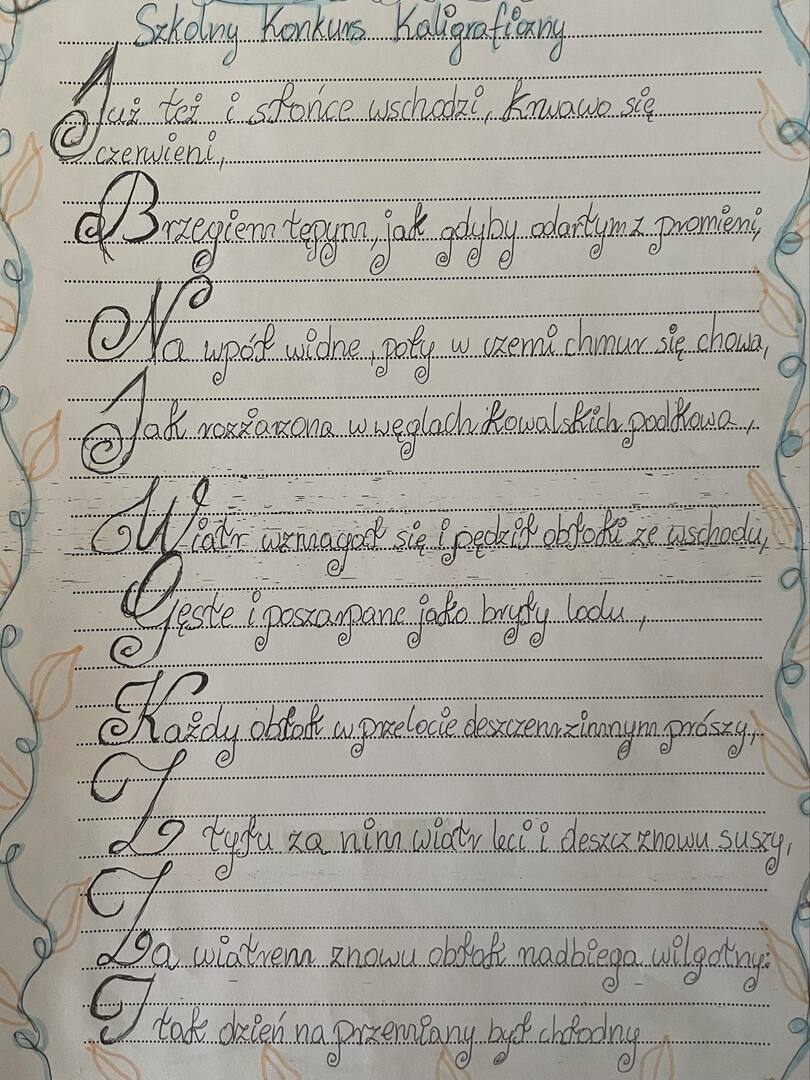 Szkolny Konkurs Kaligraficzny
Już też i słońce wschodzi, krwawo się
czerwieni,
Brzegiem tępym, jak gdyby odartym z promieni,
Na wpół widne, poły w czerni chmur się chowa,
Jak rozżarzona w węglach kowalskich podkowa,.
Wiatr wzmagał się i pędził obłoki ze wschodu,
Gęste i poszarpane jako bryły lodu,
Każdy obłok w przelocie deszczem zimnym prószy,
Z tyłu za nim wiatr leci i deszcz znowu suszy,
Za wiatrem znowu obłok nadbiega wilgotny:
I tak dzień na przemiany był chłodny